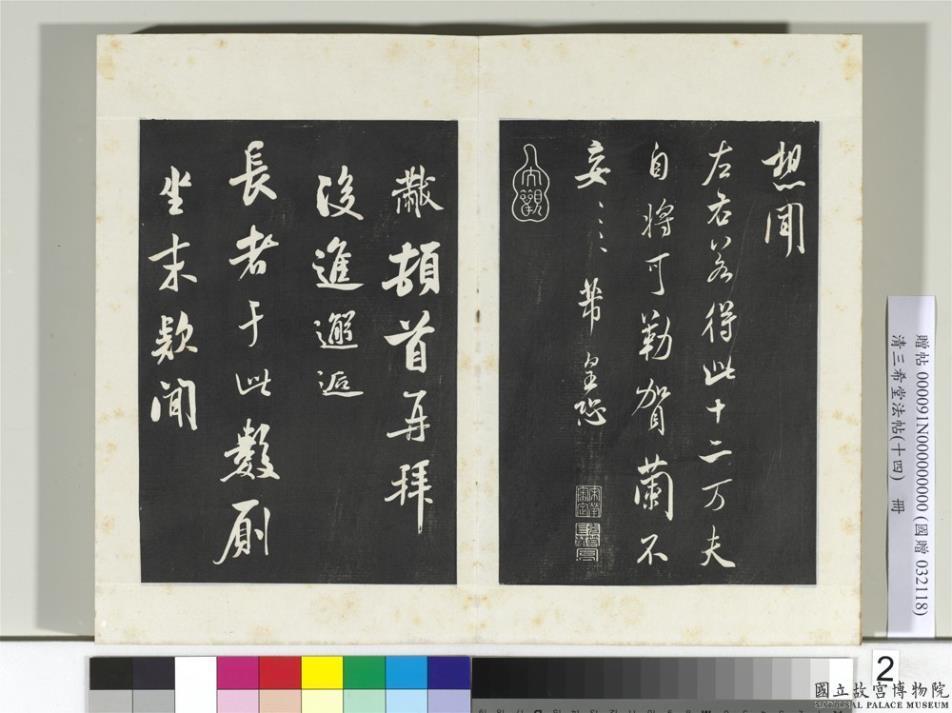 想聞
左右若得此十二万夫
自將可勒賀蘭不
妄〻〻芾皇恐
大觀
黻頓首再拜
後進邂逅
長者于此數廁
坐末款聞
贈帖 000091N000000000 (國贈 032118)
清三希堂法帖(十四) 冊
2
國立故宮博物院
NATIONAL PALACE MUSEUM